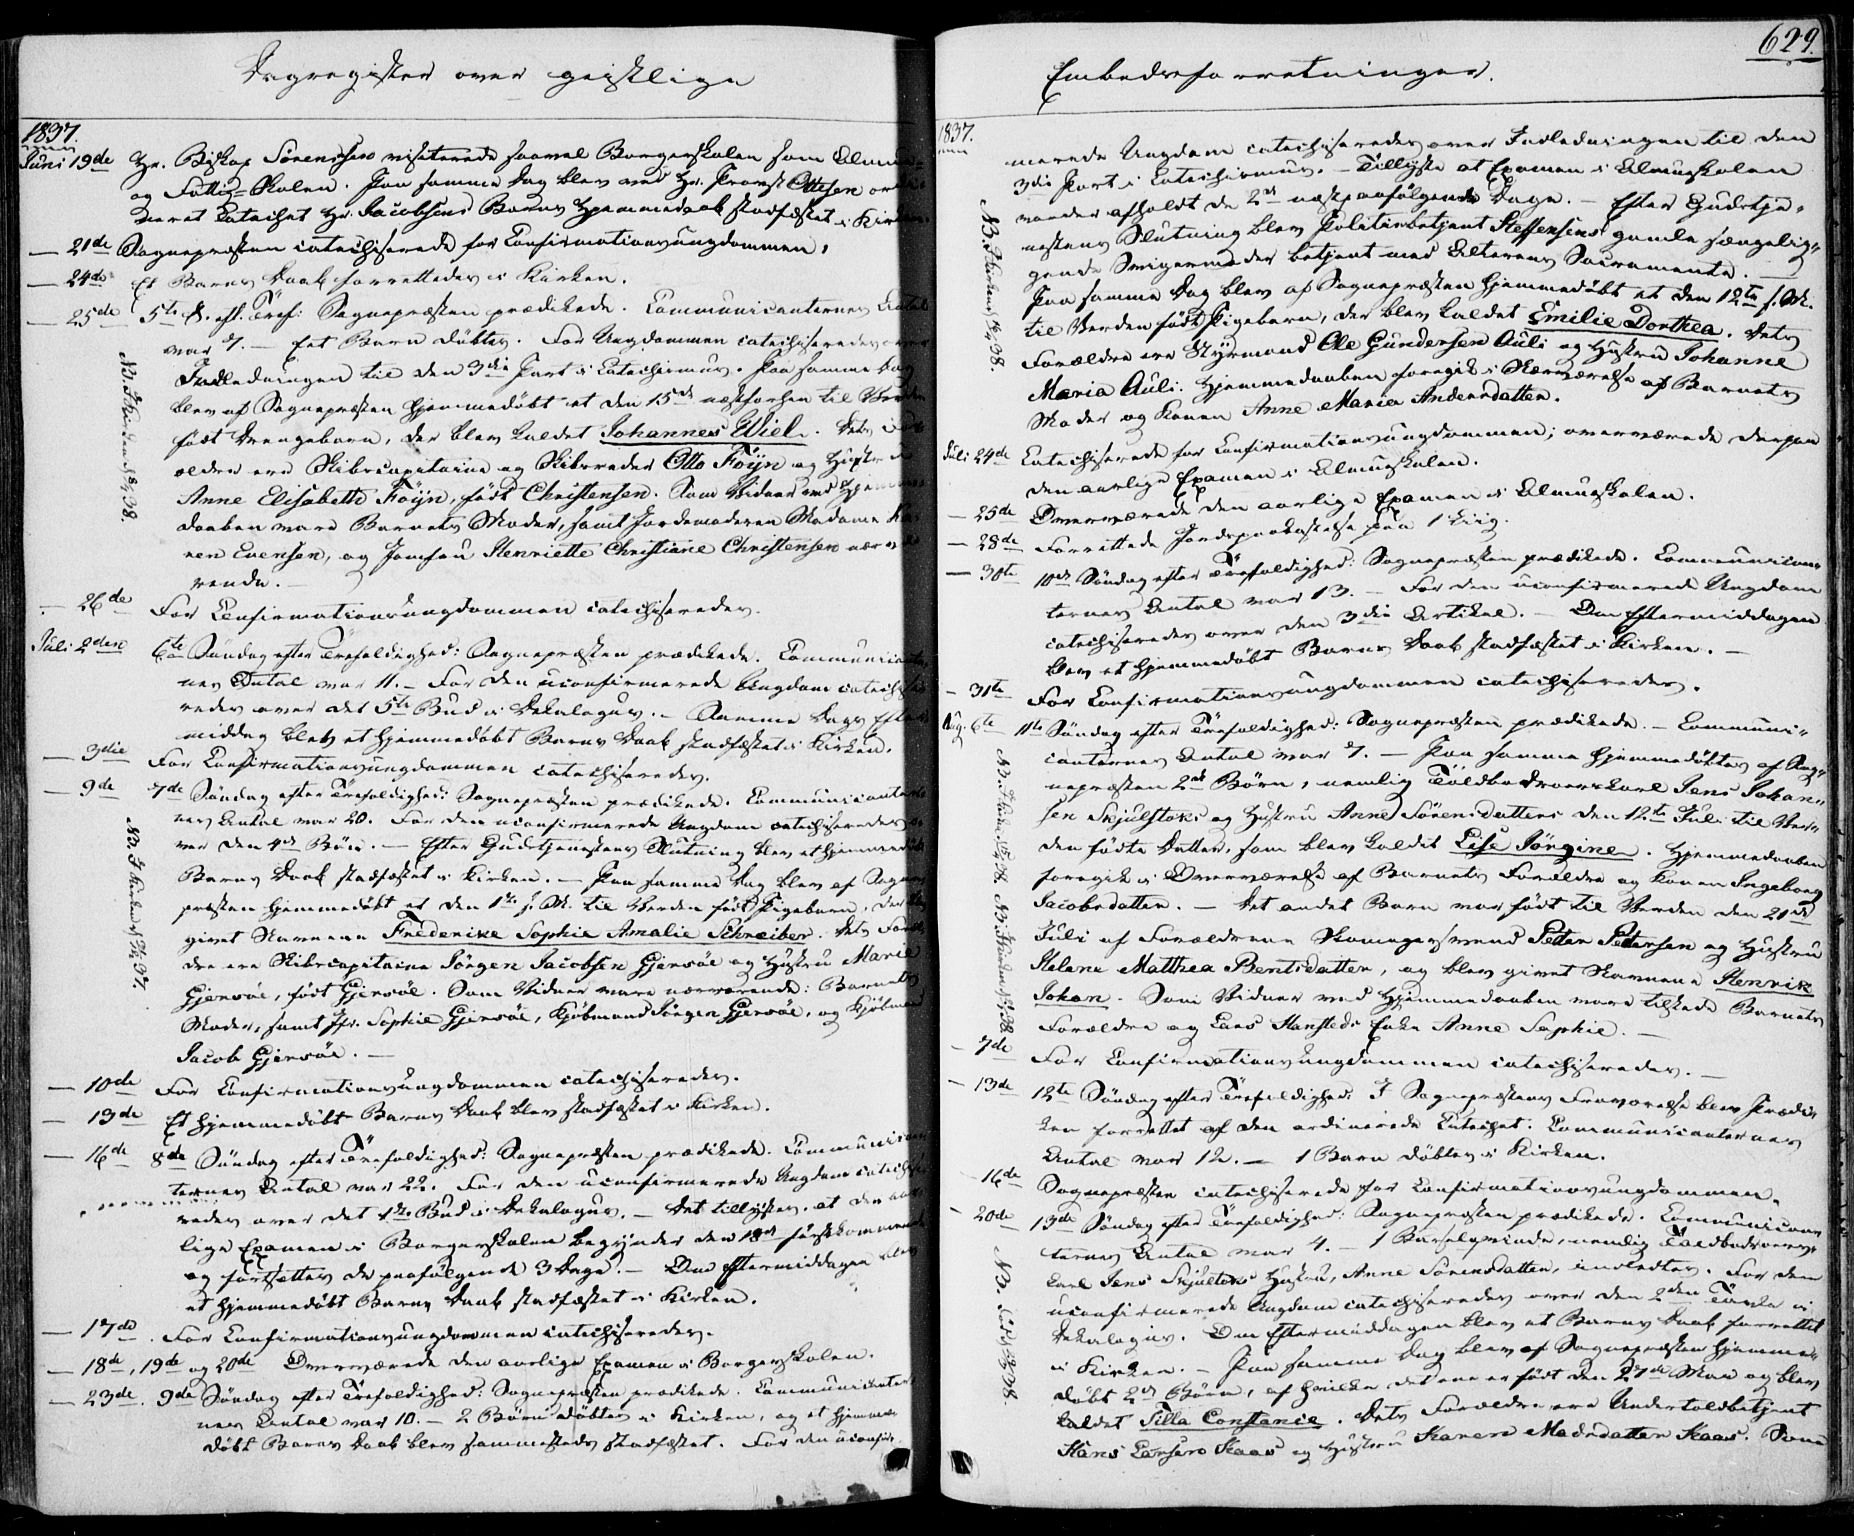 Dagregister over geistlige
1837.
Juni 19de Hr. Biskop Sörenssen visiterede saavel Borgerskolen som Almue-
og Fattig-Skolen. Paa samme Dag blev ved Hr. Provst Ottesen ordi-
neret Catechet Hr. Jacobsens Barns Hjemmedaab stadfæstet i Kirken
— 21de Sognepræsten catechiserede for Confirmationsungdommen.
— 24de Et Barns Daab forrettedes i Kirken.
— 25de 5te S. eft. Tref: Sognepræsten prædikede. Communicanternes Antal
var 7. — Eet Barn döbtes. For Ungdommen catechiseredes over
Indledningen til den 3die Part i Catechismus. Paa samme Dag
blev af Sognepræsten hjemmedöbt et den 15de næstforhen til Verden
födt Drengebarn, der blev kaldet Johannes Wiel. Dets For-
ældre ere Skibscapitaine og Skibsreder Otto Föyn og Hustru
Anne Elisabeth Föyn, födt Christensen. Som Vidner ved Hjemme-
daaben vare Barnets Moder, samt Jordemoderen Madame
ren Evensen, og Jomfru Henriette Christiane Christensen nærvæ-
rende. —
— 26de For Confirmationsungdommen catechiseredes.
Juli 2den 6te Söndag efter Trefoldighed: Sognepræsten prædikede. Communicanter-
nes Antal var 11. — For den uconfirmerede Ungdom catechise-
redes over det 5te Bud i Dekalogus. — Samme Dags Efter-
middag blev et hjemmedöbt Barns Daab stadfæstet i Kirken.
— 3die For Confirmationsungdommen catechiseredes.
— 9de 7de Söndag efter Trefoldighed: Sognepræsten prædikede. Communicanter-
nes Antal var 20. For den uconfirmerede Ungdom catechiseredes o-
ver den 4de Bön. — Efter Gudstjenestens Slutning blev et hjemmedöbt
Barns Daab stadfæstet i Kirken. — Paa samme Dag blev af Sogne-
præsten hjemmedöbt et den 1ste f. M. til Verden födt Pigebarn, der blev
givet Navnene Frederike Sophie Amalie Schreiber. Dets Foræl-
dre ere Skibscapitaine Jörgen Jacobsen Gjersöe og Hustru Marie
Gjersöe, födt Gjersöe. Som Vidner vare nærværende: Barnets
Moder, samt Jfr. Sophie Gjersöe, Kjöbmand Jörgen Gjersöe, og Kjöbmand
Jacob Gjersöe. —
— 10de For Confirmationsungdommen catechiseredes.
— 13de Et hjemmedöbt Barns Daab blev stadfæstet i Kirken.
— 16de 8de Söndag efter Trefoldighed: Sognepræsten prædikede. Communican-
ternes Antal var 22. For den uconfirmerede Ungdom catechise-
redes over det Bud i Dekalogus. — Det tillystes, at den aar-
lige Examen i Borgerskolen begynder den 18de förstkommende
og fortsættes de paafölgende 3 Dage. — Om Eftermiddagen blev
et hjemmedöbt Barns Daab stadfæstet i Kirken.
— 17de For Confirmationsungdommen catechiseredes.
— 18de, 19de og 20de Overværede den aarlige Examen i Borgerskolen.
— 23de. 9de Söndag efter Trefoldighed: Sognepræsten prædikede. Communicanter-
nes Antal var 10. — 2 Börn döbtes i Kirken, og et hjemme-
döbt Barns Daab blev sammesteds stadfæstet. For den uconfir-
Embedsforretninger.
629.
1837.
merede Ungdom catechiseredes over Indledningen til den
3die Part i Catechismus. — Tillyste at Examen i Almueskolen
vorder afholdt de 2de næstpaafölgende Dage. — Efter Gudstje-
nestens Slutning blev Politiebetjent Steffensens gamle sængelig-
gende Svigermoder betjent med Alterens Sacramente. —
Paa samme Dag blev af Sognepræsten hjemmedöbt et den 12te f. M.
til Verden födt Pigebarn, der blev kaldet Emilie Dorthea. Dets
Forældre ere Styrmand Ole Gundersen Auli og Hustru Johanne
Maria Auli. Hjemmedaaben foregik i Nærværelse af Barnets
Moder og Konen Anne Maria Andersdatter.
Juli 24de Catechiserede for Confirmationsungdommen; overværede derpaa
den aarlige Examen i Almueskolen.
— 25de Overværede den aarlige Examen i Almueskolen.
— 28de Forrettede Jordspaakastelse paa 1 Liig.
— 30te 10de Söndag efter Trefoldighed: Sognepræsten prædikede. Communican-
ternes Antal var 13. — For den uconfirmerede Ungdom
catechiseredes over den 3die Artikel. — Om Eftermiddagen
blev et hjemmedöbt Barns Daab stadfæstet i Kirken. —
— 31te For Confirmationsungdommen catechiseredes.
Aug. 6te 11te Söndag efter Trefoldighed: Sognepræsten prædikede. — Communi-
canternes Antal var 7. — Paa samme hjemmedöbtes af Sog-
nepræsten 2de Börn, nemlig Toldbodroerskarl Jens Johan-
sen Skjulstoks og Hustru Anne Sörensdatters den 12te Juli til Ver-
den födte Datter, som blev kaldet Lise Jörgine. Hjemmedaaben
foregik i Overværelse af Barnets Forældre og Konen Ingeborg
Jacobsdatter. — Det andet Barn var födt til Verden den 21de
Juli af Forældrene Skomagersvend Petter Pettersen og Hustru
Helene Matthea Bentsdatter, og blev givet Navnene Henrik
Johan. Som Vidner ved Hjemmedaaben vare tilstede Barnets
Forældre og Lars Hansteds Enke Anne Sophie. —
— 7de For Confirmationsungdommen catechiseredes. —
— 13de 12te Söndag efter Trefoldighed: I Sognepræstens Fraværelse blev Prædi-
ken forrettet af den ordinerede Catechet. Communicanternes
Antal var 12. — 1 Barn döbtes i Kirken.
— 16de Sognepræsten catechiserede for Confirmationsungdommen.
— 20de 13de Söndag efter Trefoldighed: Sognepræsten prædikede. Communican-
ternes Antal var 4. — 1 Barselqvinde, nemlig Toldbodroers-
karl Jens Skjulstoks Hustru, Anne Sörensdatter, indledtes. For den
uconfirmerede Ungdom catechiseredes over den 2den Tavle i
Dekalogus. Om Eftermiddagen blev et Barns Daab forrettet
i Kirken. — Paa samme Dag blev af Sognepræsten hjemme-
döbt 2de Börn, af hvilke det ene er födt den 27de Mai og blev
kaldet Tilla Constance. Dets Forældre ere Undertoldbetjent
Hans Larsen Haas og Hustru Karen Madsdatter Haas. Som